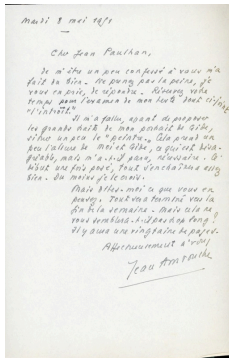 Mardi 8 mai 1951
Cher Jean Paulhan,
de m'être un peu confessé à vous m'a
fait du bien. Ne prenez pas la peine, je
vous en prie, de répondre. Réservez votre
temps pour l'examen de mon texte dont ci-joint
Il m'a fallu, avant de proposer
les grands traits de mon portrait de Gide,
situer un peu le "peintre". Cela prend un
peu l'allure de moi et Gide, ce qui est désa-
gréable, mais m'a-t-il paru, nécessaire. Ce
début une fois posé, tout s'enchaînera assez
bien. Du moins je le crois.
Mais dites-moi ce que vous en
pensez. Tout sera terminé vers la
fin de la semaine. Mais cela ne
vous semblera-t-il pas trop long?
Il y aura une vingtaine de pages.
Affectueusement à vous
Jean Amrouche